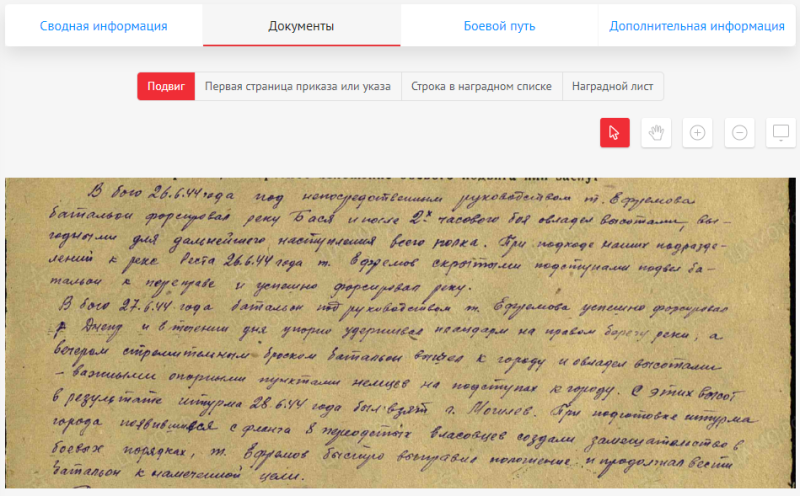 Сводная информация
Документы
Боевой путь
Дополнительная информация
Подвиг
Первая страница приказа или указа
Строка в наградном списке
Наградной лист
В бою 26.6.44 года под непосредственным руководством т. Ефремова
батальон форсировал реку Бася и после 2х часового боя овладел высотами, вы-
годными для дальнейшего наступления всего полка. При подходе наших подразде-
лений к реке Реста 26.6.44 года т. Ефремов скрытыми подступами подвел ба-
тальон к переправе и успешно форсировал реку.
В бою 27.6.44 года батальон под руководством т. Ефремова успешно форсировал
р. Днепр и в течении дня упорно удерживал плацдарм на правом берегу реки, а
вечером стремительным броском батальон вышел к городу и овладел высотами
- важными опорными пунктами немцев на подступах к городу. С этих высот
в результате штурма 28.6.44 года был взят г. Могилев. При подготовке штурма
города появившиеся с фланга 8 переодетых власовцев создали замешательство в
боевых порядках, т. Ефремов быстро выправил положение и продолжал вести
батальон к намеченной цели.